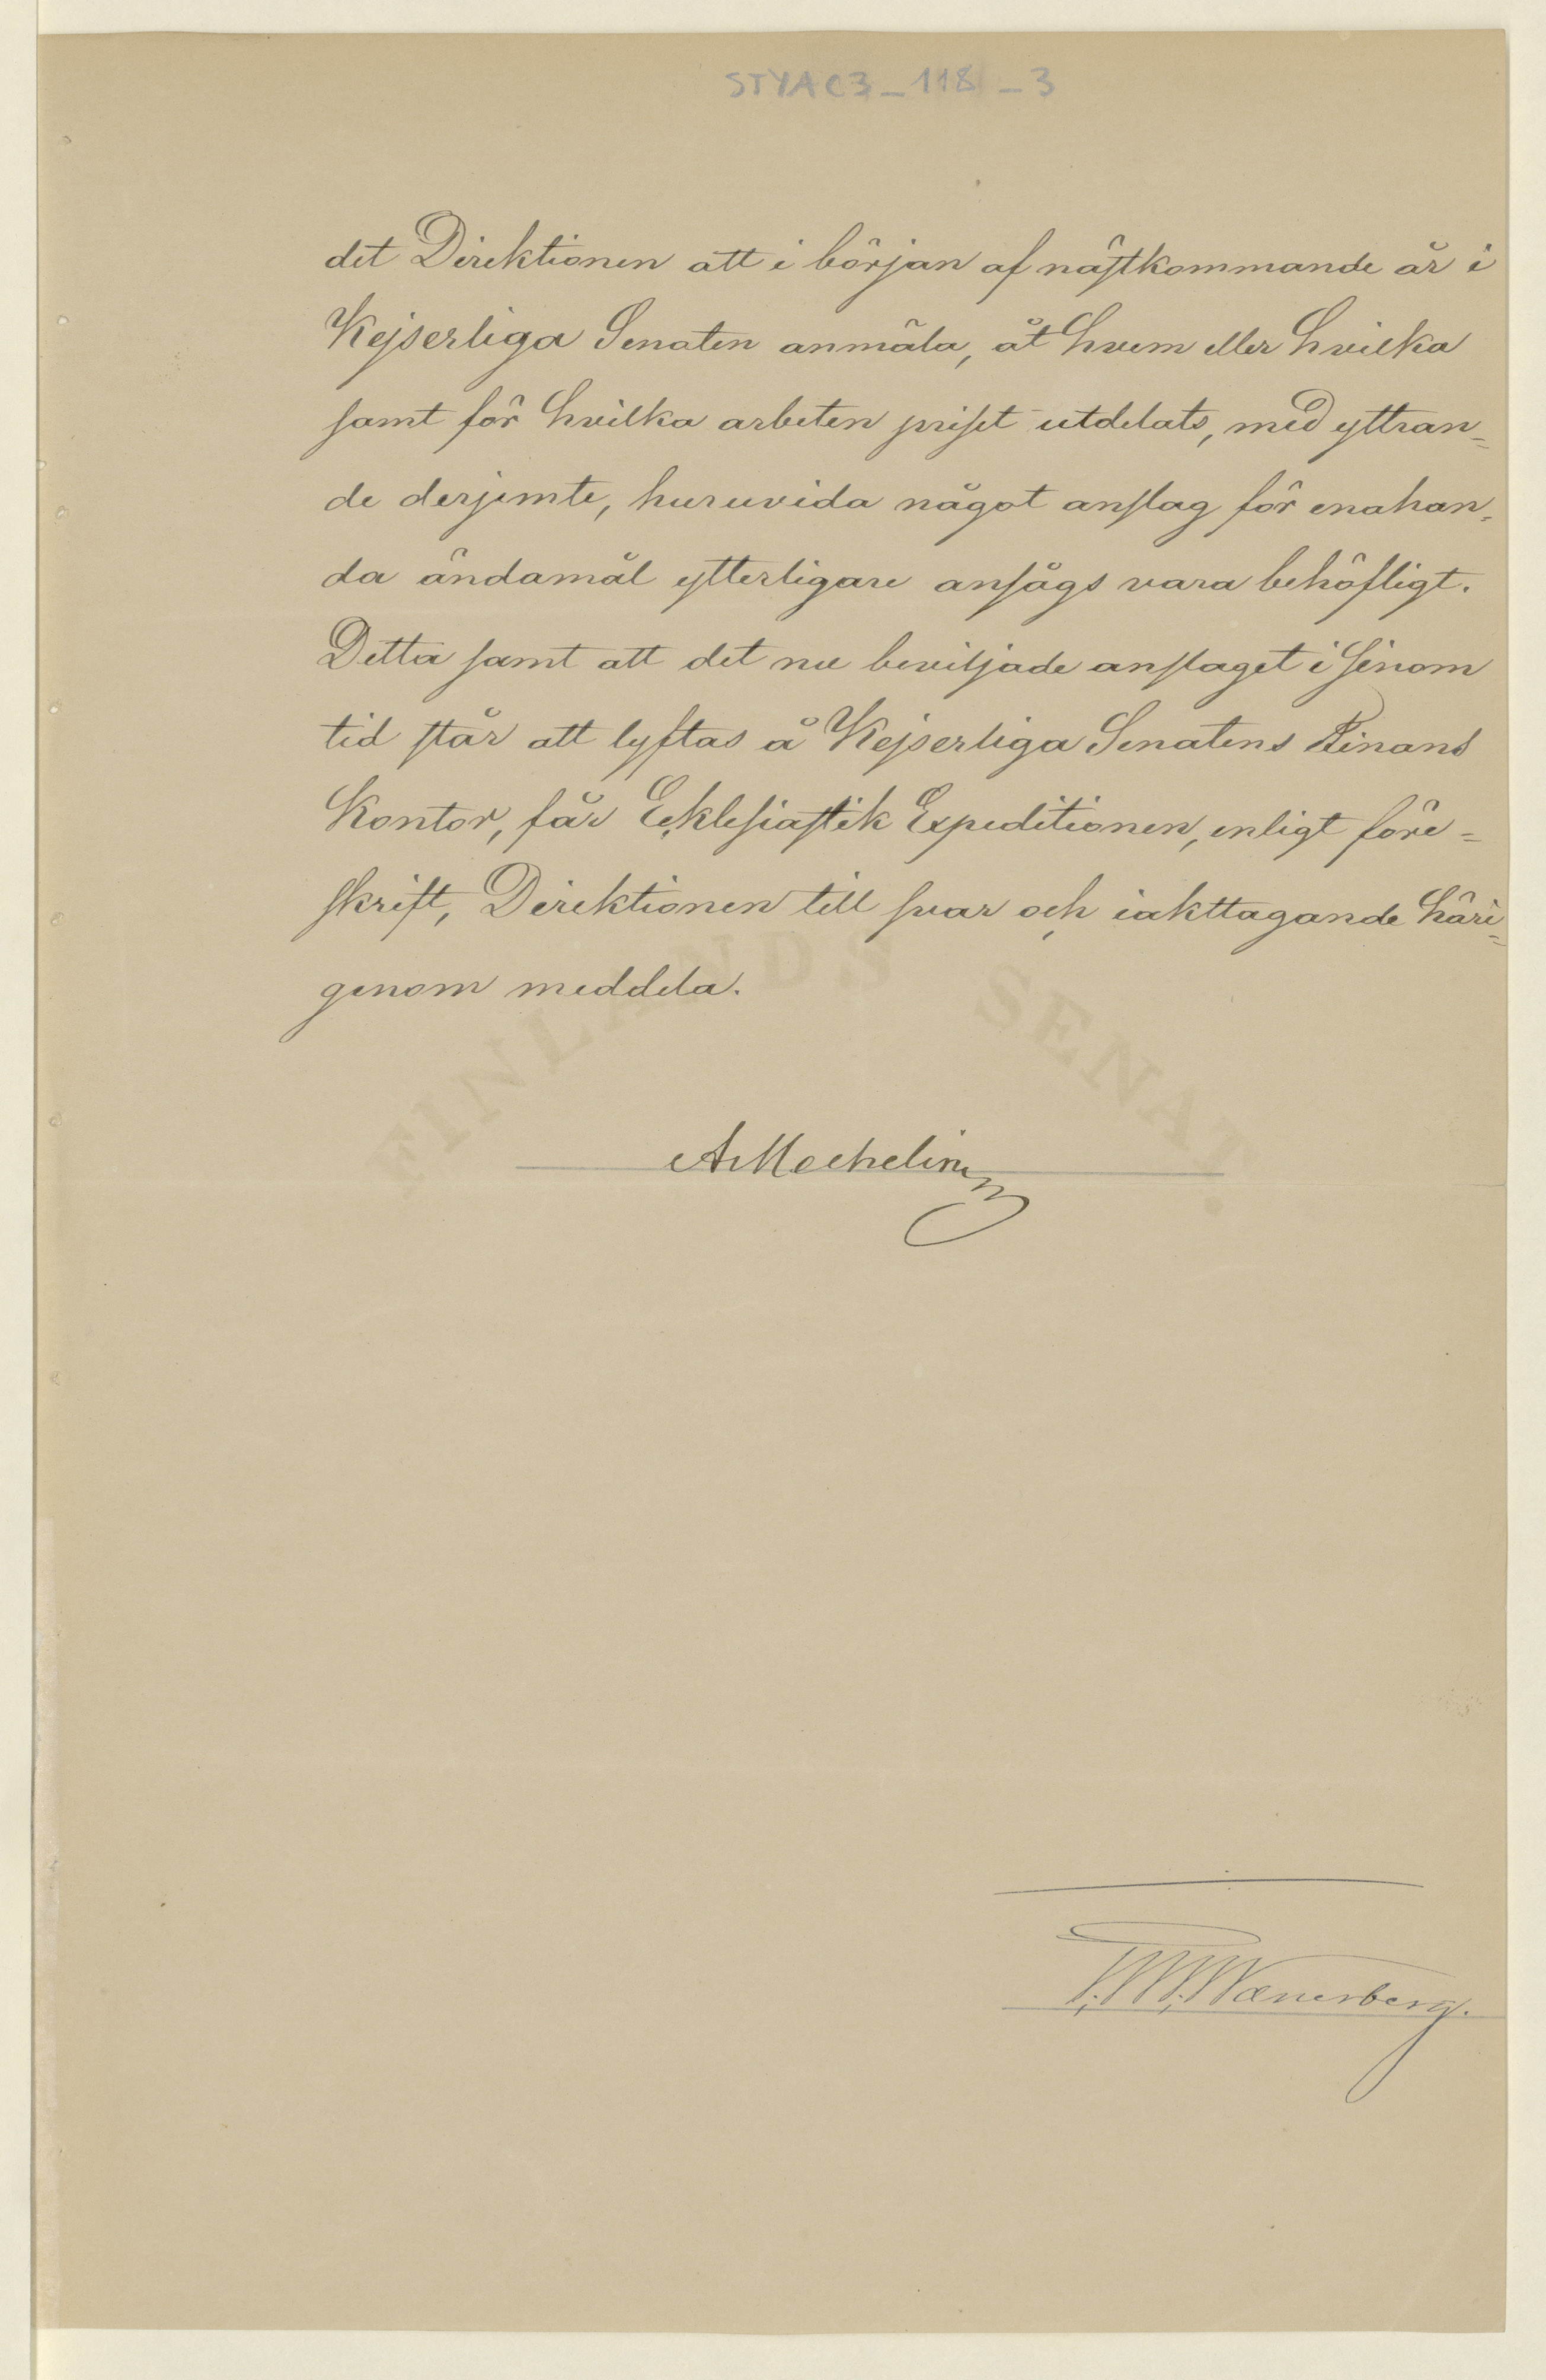 STYA C3_118_3
det Direktionen att i början af nästkommande år i
Kejserliga Senaten anmäla, åt hvem eller hvilka
samt för hvilka arbeten priset utdelats, med yttran=
de derjemte, huruvida något anslag för enahan=
da ändamål ytterligare ansågs vara behöfligt.
Detta samt att det nu beviljade anslaget i sinom
tid står att lyftas å Kejserliga Senatens Finans
Kontor, får Ecklesiastik Expeditionen, enligt före=
skrift, Direktionen till svar och iakttagande häri=
genom meddela.
FINLANDS SENAT.
A Mechelin